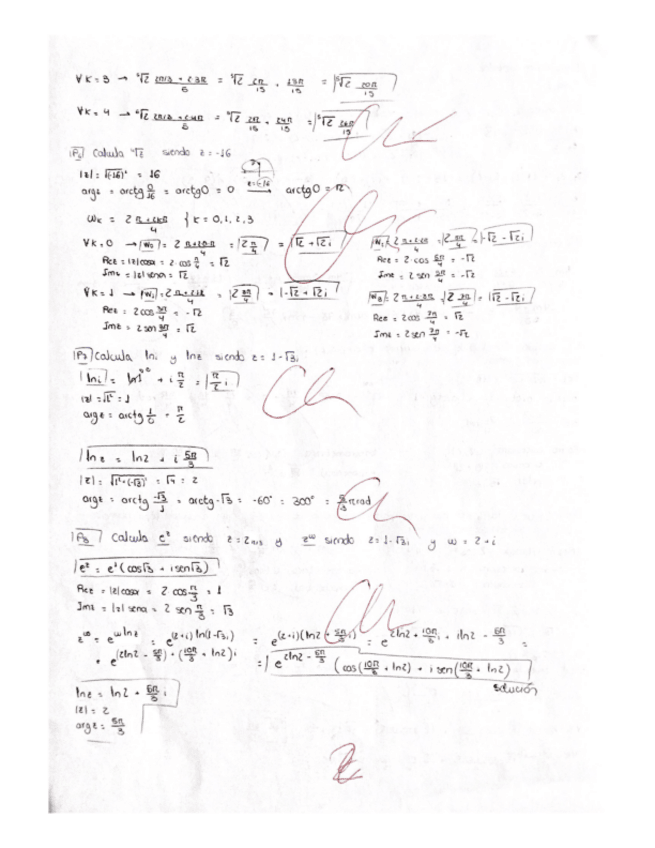 ∀ K = 3 → ⁵√2 (2π/3 + 2·3π)/5 = ⁵√2 2π/15 + 18π/15 = ⁵√2 20π/15
∀ K = 4 → ⁵√2 (2π/3 + 2·4π)/5 = ⁵√2 2π/15 + 24π/15 = ⁵√2 26π/15
Calcula ⁴√z siendo z = -16
|z| = √(-16)² = 16
argz = arctg 0/16 = arctg0 = 0 → arctg0 = π
z=(-16
Wk = 2 (π + 2kπ)/4 { K = 0, 1, 2, 3
∀ K = 0 → W₀ = 2 (π+2·0·π)/4 = 2 π/4 = √2 + √2 i
Rez = |z| cosα = 2 cos π/4 = √2
Imz = |z| senα = √2
∀ K = 1 → W₁ = 2 (π+2·1π)/4 = 2 3π/4 = -√2 + √2 i
Rez = 2 cos 3π/4 = -√2
Imz = 2 sen 3π/4 = √2
-√2 - √2 i
Rez = 2 · cos 5π/4 = -√2
Imz = 2 sen 5π/4 = -√2
√2 - √2 i
Rez = 2 cos 7π/4 = √2
Imz = 2 sen 7π/4 = -√2
P7 Calcula lni y lnz siendo z = 1-√3i
lni = ln1 + i π/2 = π/2 i
|z| = √1² = 1
argz = arctg 1/0 = π/2
lnz = ln2 + i 5π/3
|z| = √1²+(-√3)² = √4 = 2
argz = arctg -√3/1 = arctg -√3 = -60° = 300° = 5/3 π rad
P8 Calcula e^z siendo z = 2π/3 y z^w siendo z = 1-√3i y w = 2+i
e^z = e¹ (cos√3 + i sen√3)
Rez = |z| cosα = 2 cos π/3 = 1
Imz = |z| senα = 2 sen π/3 = √3
z^w = e^(w lnz) = e^((2+i) ln(1-√3i)) = e^((2+i)(ln2 + 5π/3 i)) = e^(2ln2 + 10π/3 i + iln2 - 5π/3) =
= e^((2ln2 - 5π/3) + (10π/3 + ln2)i) = e^(2ln2 - 5π/3) (cos(10π/3 + ln2) + i sen(10π/3 + ln2))
solución
lnz = ln2 + 5π/3 i
|z| = 2
argz = 5π/3